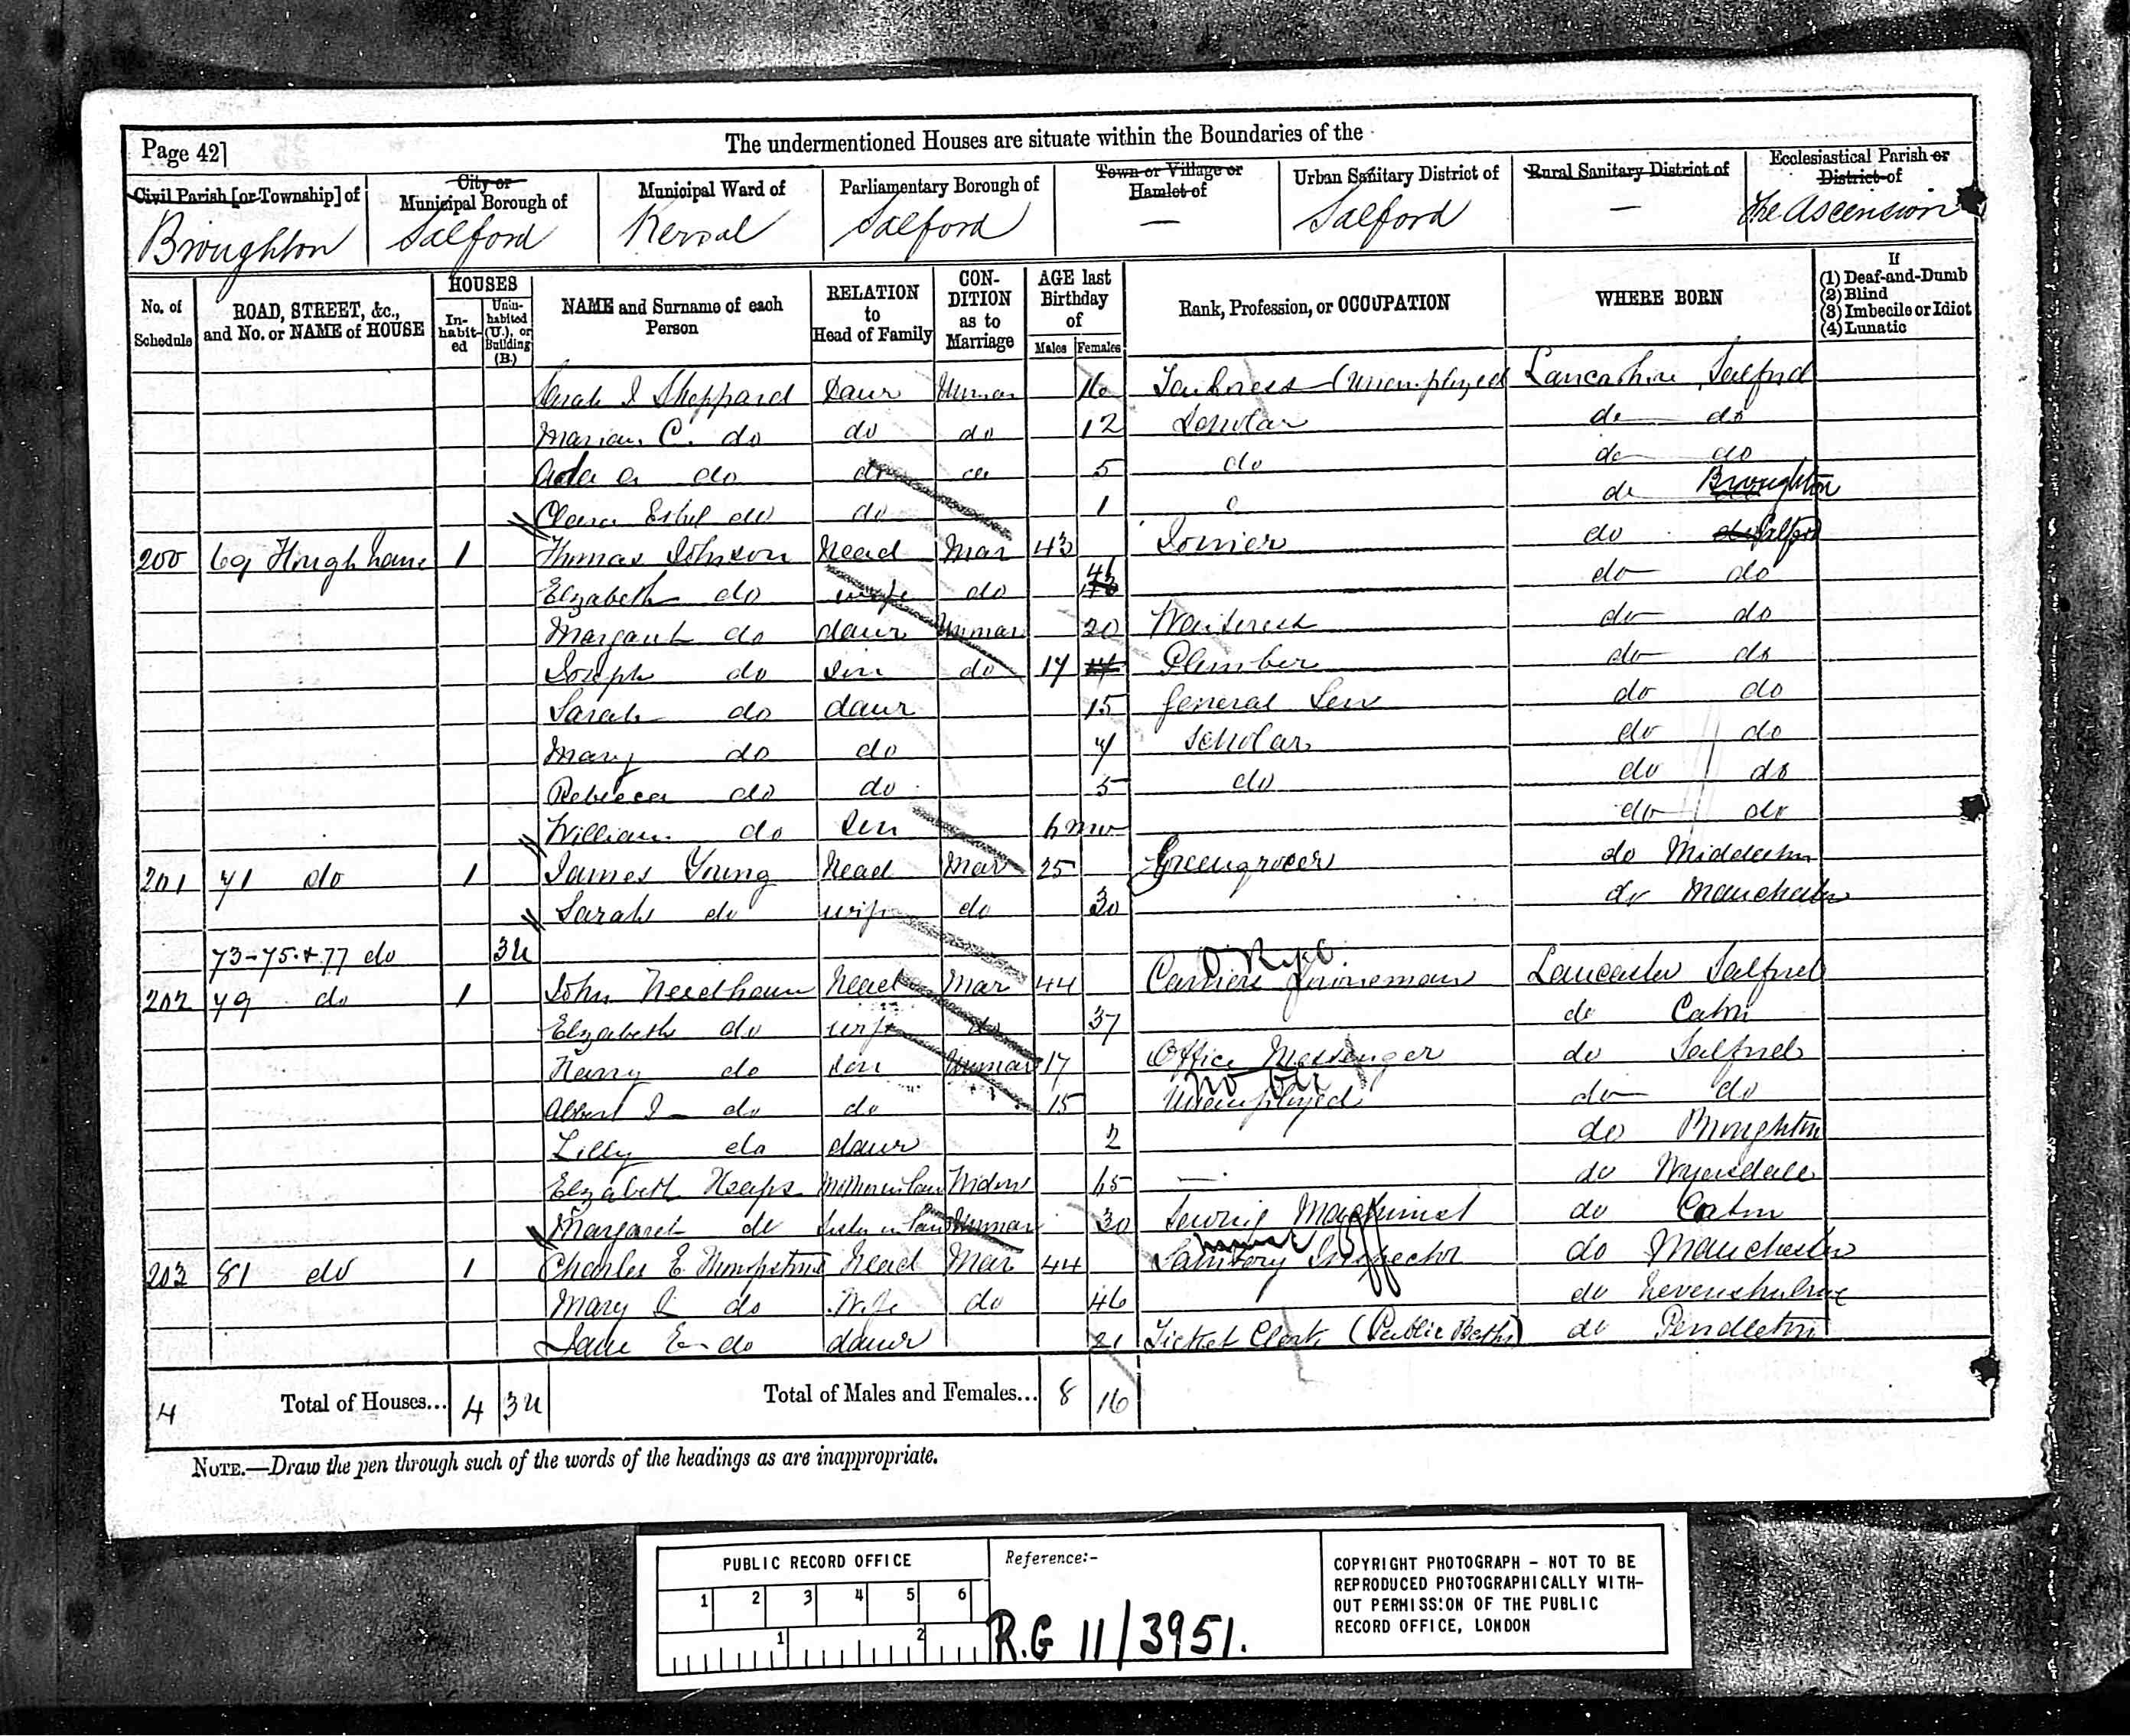 Page 42]
The undermentioned Houses are situate within the Boundaries of the
Civil Parish [or Township] of
City or Municipal Borough of
Municipal Ward of
Parliamentary Borough of
Town or Village or Hamlet of
Urban Sanitary District of
Rural Sanitary District of
Ecclesiastical Parish or District of
Broughton Salford Kersal Salford — Salford — The Ascension
No. of Schedule
ROAD, STREET, &c., and No. or NAME of HOUSE
HOUSES
In-habit-ed
Unin-habited (U.), or Building (B.)
NAME and Surname of each Person
RELATION to Head of Family
CON-DITION as to Marriage
AGE last Birthday of
Males Females
Rank, Profession, or OCCUPATION
WHERE BORN
If
(1) Deaf-and-Dumb
(2) Blind
(3) Imbecile or Idiot
(4) Lunatic
Sarah J Sheppard Daur Unmar 16 (Unemployed Lancashire Salford
Marian C. do do do 12 Scholar do do
Ada A do do do 5 do do do
Clara Ethel do do 1 do Broughton
200 69 Hough Lane 1 Thomas Johnson Head Mar 43 Joiner do do Salford
Elizabeth do wife do 43 do do
Margaret do daur Unmar 20 Waitress do do
Joseph do Son do 17 17 Plumber do do
Sarah do daur 15 General Serv do do
Mary do do 7 Scholar do do
Rebecca do do 5 do do do
William do Son 6 mo do do
201 71 do 1 James Young Head Mar 25 Greengrocer do Middleton
Sarah do wife do 30 do Manchester
73-75 + 77 do 3U
202 79 do 1 John Needham Head Mar 44 Carriers Lancaster Salford
Elizabeth do wife do 37 do Caton
Harry do Son Unmar 17 Office Messenger do Salford
Albert J do do 15 Unemployed do do
Lilly do daur 2 do Broughton
Elizabeth Heaps Mother in law Widow 65 — do Wyersdale
Margaret do Sister in law Unmar 30 Sewing Machinist do Caton
203 81 do 1 Charles E Head Mar 44 Sanitory Inspector do Manchester
Mary do Wife do 46 do Levenshulme
Jane E do daur 21 Ticket Clerk (Public Baths) do Pendleton
4 Total of Houses... 4 3U Total of Males and Females... 8 16
NOTE.—Draw the pen through such of the words of the headings as are inappropriate.
PUBLIC RECORD OFFICE
1 2 3 4 5 6
1 2
Reference:-
R.G 11/3951.
COPYRIGHT PHOTOGRAPH - NOT TO BE
REPRODUCED PHOTOGRAPHICALLY WITH-
OUT PERMISSION OF THE PUBLIC
RECORD OFFICE, LONDON